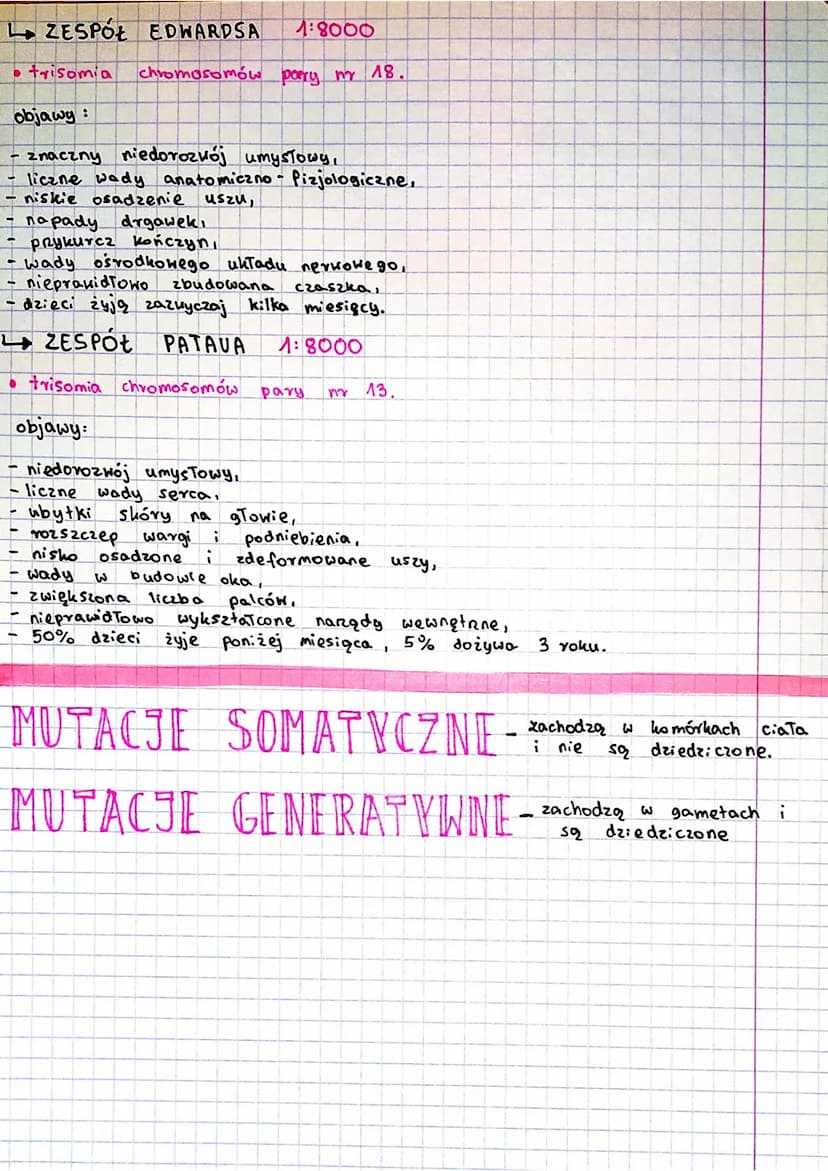 ↳ ZESPÓŁ EDWARDSA 1:8000
• trisomia chromosomów pary nr 18.
objawy:
- znaczny niedorozwój umysłowy,
- liczne wady anatomiczno-fizjologiczne,
- niskie osadzenie uszu,
- napady drgawek,
- przykurcz kończyn,
- wady ośrodkowego układu nerwowego,
- nieprawidłowo zbudowana czaszka,
- dzieci żyją zazwyczaj kilka miesięcy.
↳ ZESPÓŁ PATAUA 1:8000
• trisomia chromosomów pary nr 13.
objawy:
- niedorozwój umysłowy,
- liczne wady serca,
- ubytki skóry na głowie,
- rozszczep wargi i podniebienia,
- nisko osadzone i zdeformowane uszy,
- wady w budowie oka,
- zwiększona liczba palców,
- nieprawidłowo wykształcone narządy wewnętrzne,
- 50% dzieci żyje poniżej miesiąca, 5% dożywa 3 roku.
MUTACJE SOMATYCZNE - zachodzą w komórkach ciała
i nie są dziedziczone.
MUTACJE GENERATYWNE - zachodzą w gametach i
są dziedziczone